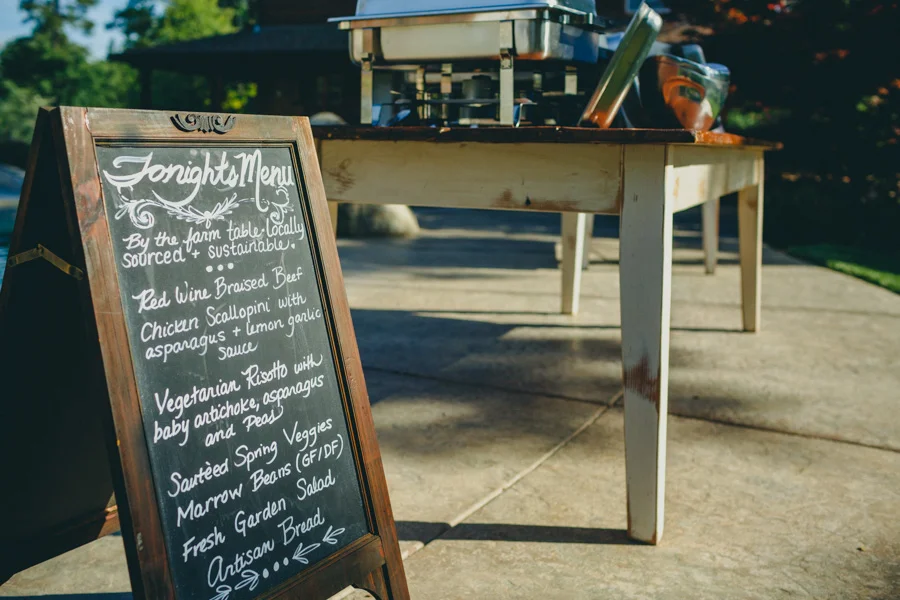 Tonights Menu
By the farm table-locally
sourced + sustainable.
Red Wine Braised Beef
Chicken Scallopini with
asparagus + lemon garlic
sauce
Vegetarian Risotto with
baby artichoke, asparagus
and Peas
Sautèed Spring Veggies
Marrow Beans (GF/DF)
Fresh Garden Salad
Artisan Bread